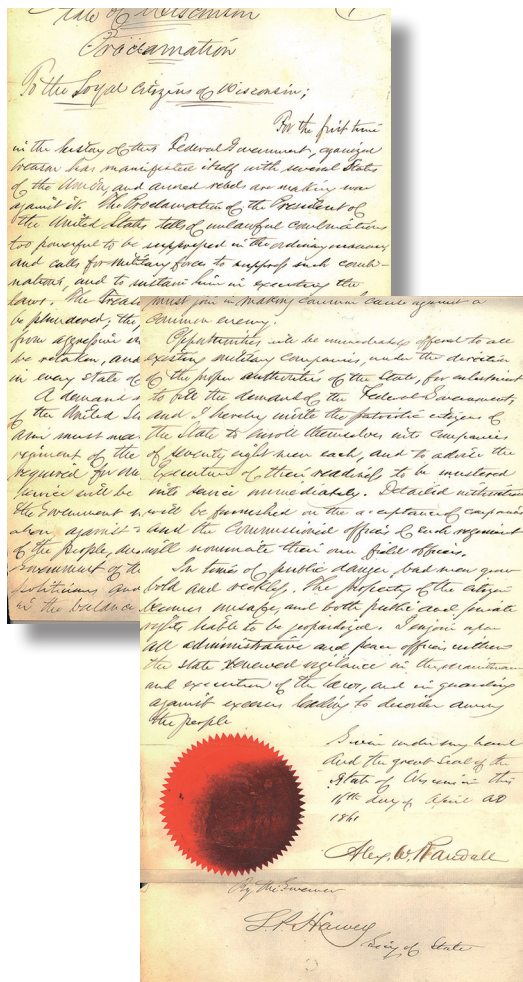 State of Wisconsin
Proclamation
To the Loyal Citizens of Wisconsin;
For the first time
in the history of this Federal Government, organized
treason has manifested itself with several States
of the Union, and armed rebels are making war
against it. The Proclamation of the President of
the United States tells of unlawful combinations
too powerful to be suppressed in the ordinary manner
and calls for military forces to suppress such combi-
nations, and to sustain him in executing the
laws. The Treas
be plundered, the
from aggressive
be retaken, and
in every state of
A demand
of the United St
and must
regiment of the
required for
service will be
the Government
against
of the people,
Government of the
politicians and
in the balance
must join in making common cause against a
common enemy.
Opportunities will be immediately offered to all
existing military companies, under the direction
of the proper authorities of the State, for enlistment
to fill the demand of the Federal Government,
and I hereby invite the patriotic citizens of
the State to enroll themselves into companies
of seventy eight men each, and to advise the
Executive of their readiness to be mustered
into service immediately. Detailed instructions
will be furnished on the acceptance of companies
and the Commissioned officers of each regiment
will nominate their own field officers.
In times of public danger bad men grow
bold and reckless. The property of the citizen
becomes unsafe, and both public and private
rights liable to be jeopardized. I enjoin upon
all administrative and peace officers within
the state renewed vigilance in the maintenance
and execution of the laws, and in guarding
against excesses leading to disorder among
the people
Given under my hand
and the great Seal of the
State of Wisconsin this
16th day of April AD
1861
Alex. W. Randall
By the Governor
L. P. Harvey
Secy of State